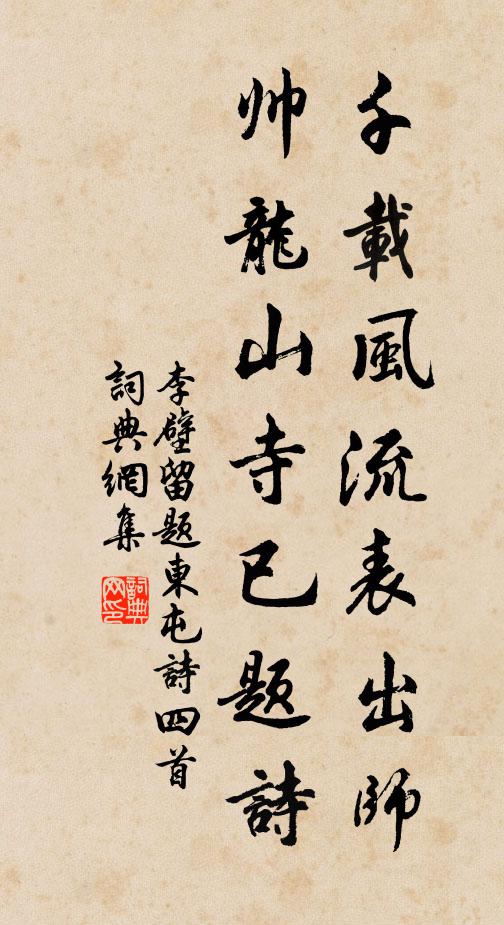 千載風流表出師
帥龍山寺已題詩
李壁留題東屯詩四首
詞典網集
詞典網印